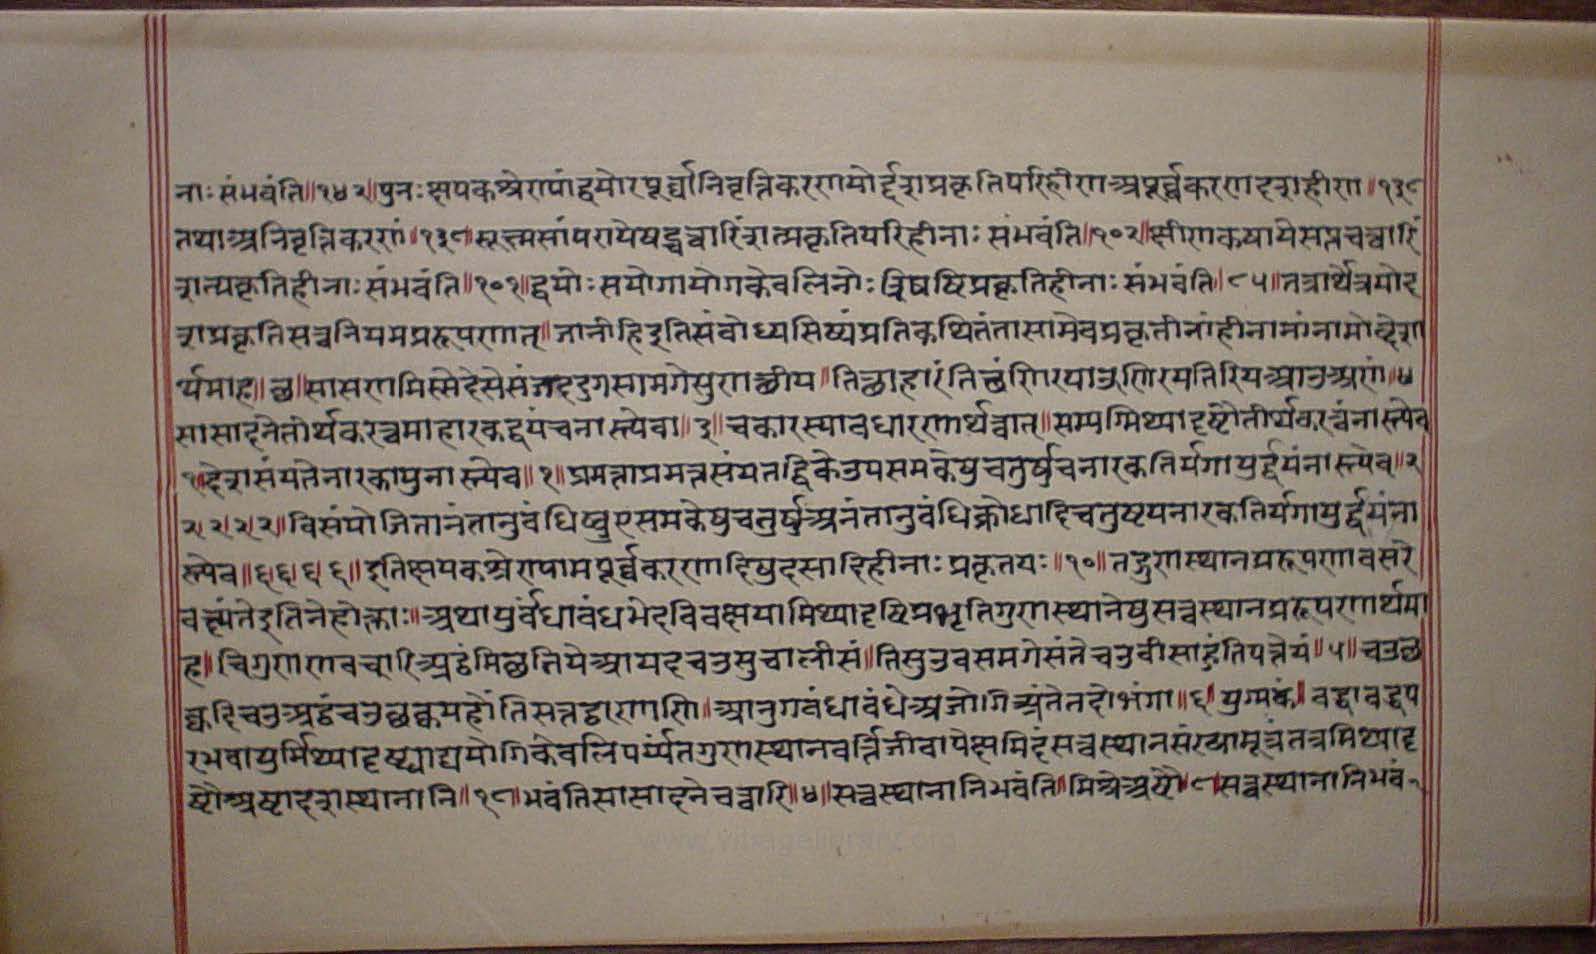 नाः संभवंति॥१४२॥पुनः क्षपकश्रेण्यपांद्वयोरपूर्व्वानिवृत्तिकरणयोर्द्दशप्रकृतिपरिहीणअपूर्व्वकरणदशहीण॥१३८
तथाअनिवृत्तिकरणं॥१३८॥सूक्ष्मसांपरायेषट्चत्वारिंशत्प्रकृतिपरिहीनाः संभवंति॥१०२॥क्षीणकषायेसप्तचत्वारिं
शत्प्रकृतिहीनाः संभवंति॥१०१॥द्वयोः सयोगायोगकेवलिनोः त्रिषष्टिप्रकृतिहीनाः संभवंति॥८५॥तत्रार्थेत्रयोद
शप्रकृतिसत्त्वनियमप्ररूपणात्॥जानीहिइतिसंबोध्यसिष्यंप्रतिकथितंतासामेवप्रकृतीनांहीनानांनामोद्देशा
र्थमाह॥छ॥सासणमिस्सेदेसेसंजददुगसामगेसुणत्थीय॥तित्थाहारंतित्थंणिरयाउणिरयतिरियआउअणं॥४
सासादनेतीर्थकरत्वमाहारकद्वयंचनास्त्येवा॥३॥चकारस्यावधारणार्थत्वात्॥सम्यग्मिथ्यादृष्टौतीर्थकरत्वंनास्त्येव
१॥देशसंयतेनारकायुनास्त्येव॥१॥प्रमत्ताप्रमत्तसंयतद्विकेउपसमकेषुचतुर्षुचनारकतिर्यगायुर्द्वयंनास्त्येव॥२
२।२।२।२॥विसंयोजितानंतानुबंधिषुउपसमकेषुचतुर्षुअनंतानुबंधिक्रोधादिचतुष्टयनारकतिर्यगायुर्द्वयंना
स्त्येव॥६।६।६।६॥इतिक्षपकश्रेण्यामपूर्व्वकरणदिषुदसादिहीनाः प्रकृतयः॥१०॥तद्गुणस्थानप्ररूपणावसरे
वक्ष्यंतेइतिनेहोक्ताः॥अथायुर्बंधाबंधभेदविवक्षयामिथ्यादृष्टिप्रभृतिगुणस्थानेषुसत्त्वस्थानप्ररूपणार्थमा
ह॥चिगुणणवचारिअट्ठंमिछतियेआयदचउसुचालीसं॥तिसुउवसमगेसंतेचउवीसाहुंतिपत्तेयं॥५॥चउछ
क्कदिचउअट्ठंचउछक्कयहोंतिसत्तट्ठाणाणि॥आउगबंधाबंधेअजोगिअंतेतदोभंगा॥६॥युग्मकं॥बद्धाबद्धप
रभवायुर्मिथ्यादृष्ट्याद्ययोगिकेवलिपर्य्यंतगुणस्थानवर्त्तिजीवापेक्षमिदंसत्त्वस्थानसंख्यासूत्रंतत्रमिथ्यादृ
ष्टौअष्टादशस्थानानि॥१८॥भवंतिसासादनेचत्वारि॥४॥सत्त्वस्थानानिभवंति॥मिश्रेअष्टौ॥८॥सत्त्वस्थानानिभवं